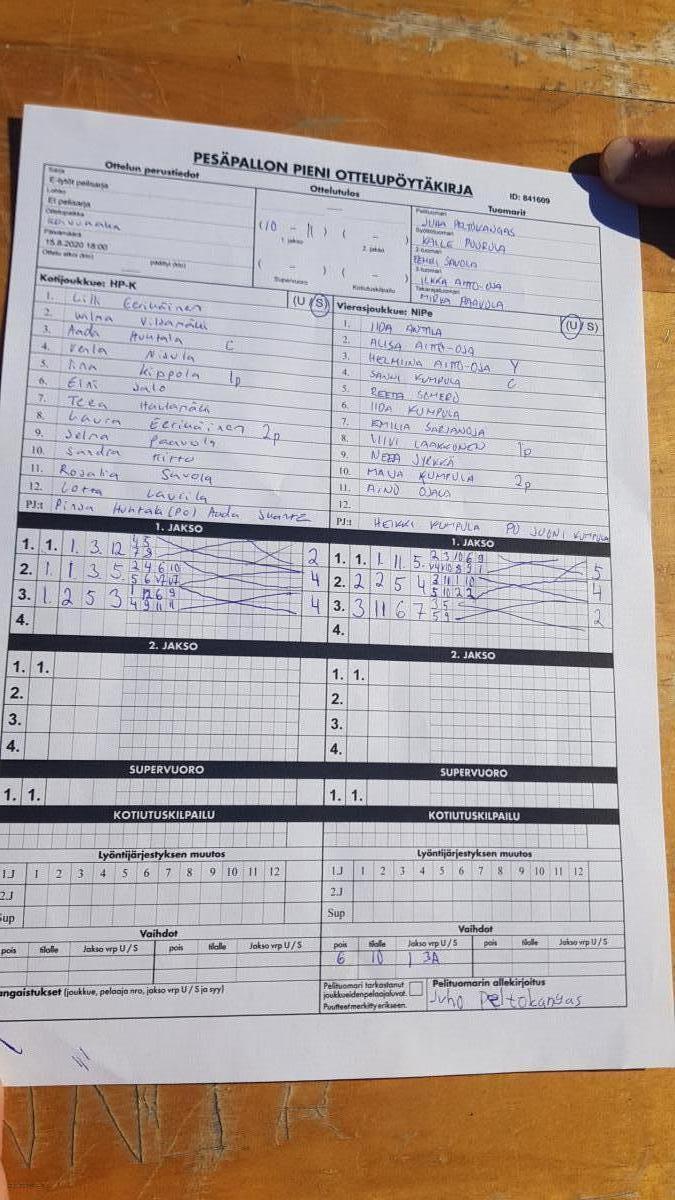 PESÄPALLON PIENI OTTELUPÖYTÄKIRJA
ID: 841609
Ottelun perustiedot
Ottelutulos
Tuomarit
Sarja
E-tytöt pelisarja
Lohko
Ei pelisarja
Ottelupaikka
Päivämäärä
15.8.2020 18:00
Ottelu alkoi (klo) päättyi (klo)
(10 - 11) ( - )
1. jakso 2. jakso
( - ) ( - )
Supervuoro Kotiutuskilpailu
Pelituomari
JUHA PELTOKANGAS
Syöttötuomari
KALLE PUURULA
2-tuomari
SAVOLA
3-tuomari
ILKKA AITTO-OJA
Takarajatuomari
MIRKA PAAVOLA
Kotijoukkue: HP-K
(U / S)
1. Lilli Eerikäinen
2. Wilma Viitamäki
3. Aada Huhtala C
4. Venla Nisula
5. Iina Kippola 1p
6. Elni Salo
7. Teea Hautamäki
8. Laura Eerikäinen 2p
9. Selma Paavola
10. Sandra
11. Rosalia Savola
12. Lotta Laurila
PJ:t Pinja Huhtala (PO) Aada
Vierasjoukkue: NiPe
(U / S)
1. IIDA ANTTILA
2. ALISA AITTO-OJA
3. HELMIINA AITTO-OJA Y
4. SANNI KUMPULA C
5. REETTA SOMERO
6. IIDA KUMPULA
7. EMILIA SARJANOJA
8. VIIVI LAAKKONEN 1p
9. NEEA JYRKKÄ
10. MAIJA KUMPULA 2p
11. AINO OJALA
12.
PJ:t HEIKKI KUMPULA PO JUONI KUMPULA
1. JAKSO
1. 1. 1. 3. 12 2
2. 1. 1 3. 5. 4
3. 1. 2 5 3 4
4.
1. JAKSO
1. 1. 1. 11. 5. 5
2. 2 2 5 4 4
3. 3 11 6 7 2
4.
2. JAKSO
1. 1.
2.
3.
4.
2. JAKSO
1. 1.
2.
3.
4.
SUPERVUORO
1. 1.
SUPERVUORO
1. 1.
KOTIUTUSKILPAILU
KOTIUTUSKILPAILU
Lyöntijärjestyksen muutos
1.J 1 2 3 4 5 6 7 8 9 10 11 12
2.J
Sup
Lyöntijärjestyksen muutos
1.J 1 2 3 4 5 6 7 8 9 10 11 12
2.J
Sup
Vaihdot
pois tilalle Jakso vrp U / S pois tilalle Jakso vrp U / S
Vaihdot
pois tilalle Jakso vrp U / S pois tilalle Jakso vrp U / S
6 10 1 3A
angaistukset (joukkue, pelaaja nro, jakso vrp U / S ja syy)
Pelituomari tarkastanut
joukkueiden pelaajaluvat.
Puutteet merkitty erikseen.
Pelituomarin allekirjoitus
Juho Peltokangas